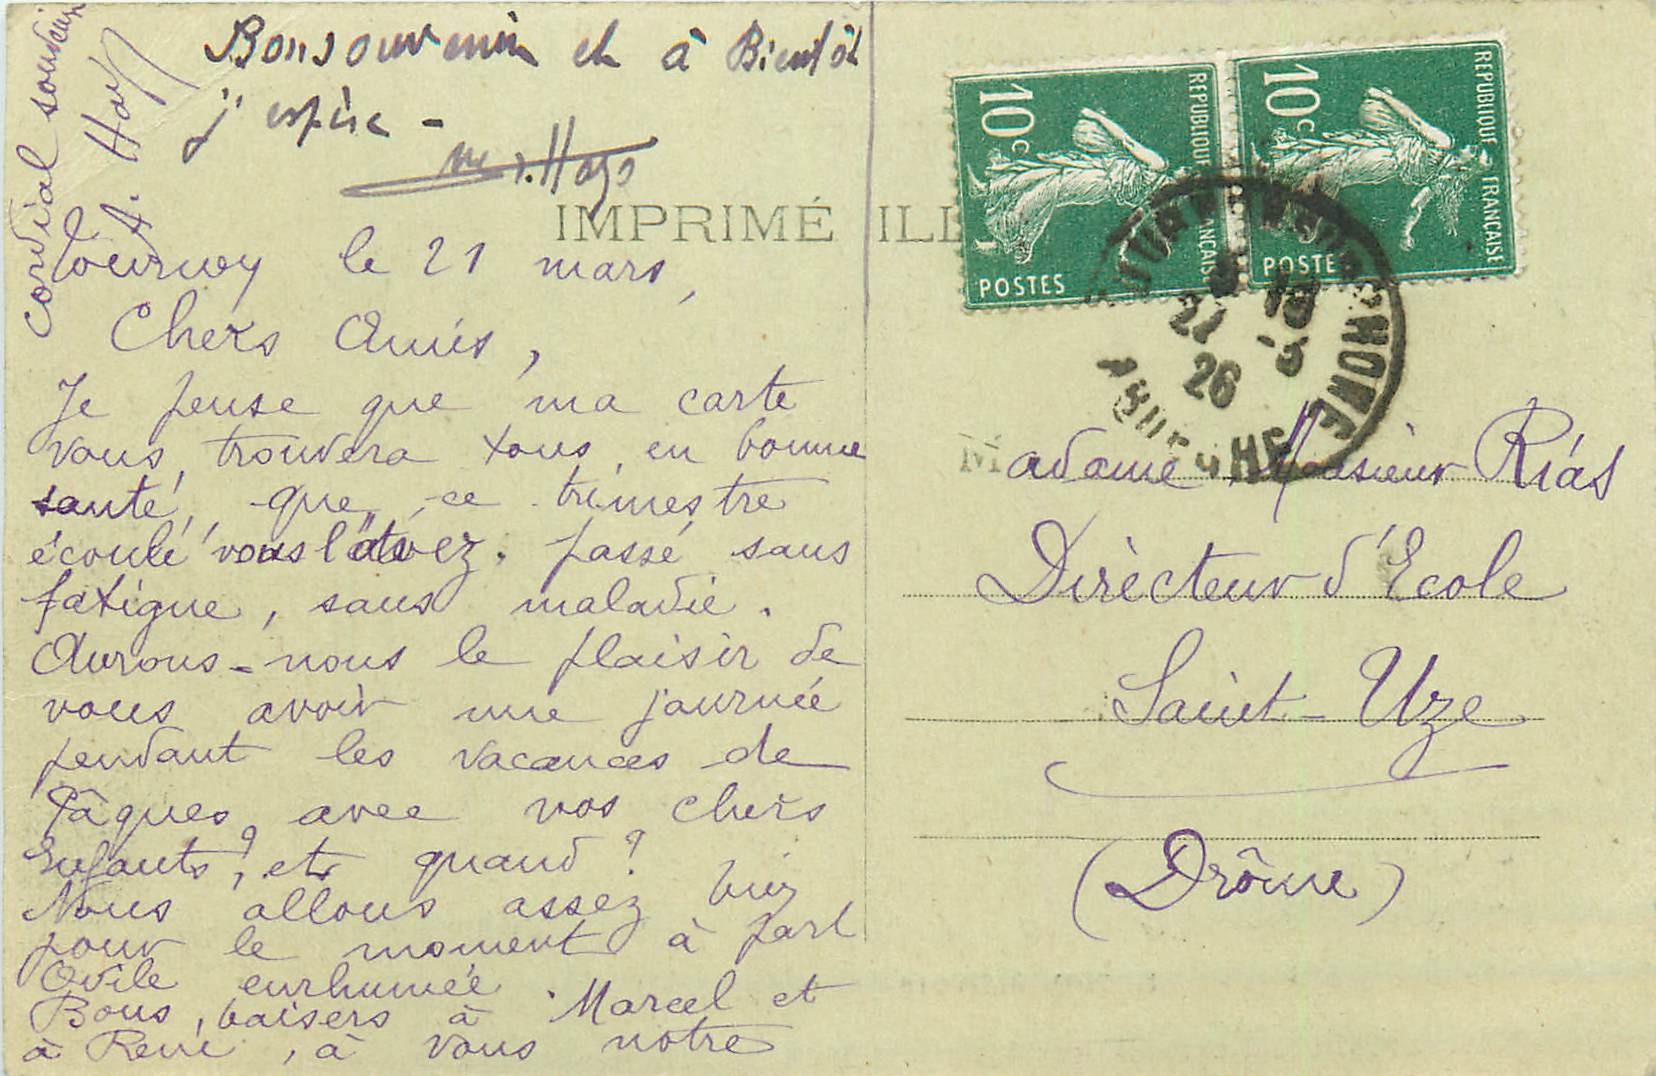 Tournoy le 21 mars,
Chers Amis,
Je pense que ma carte
vous trouvera tous, en bonne
santé, que ce trimestre
écoulé vous l'avez passé sans
fatigue, sans maladie.
Aurons-nous le plaisir de
vous avoir une journée
pendant les vacances de
Pâques, avec vos chers
Enfants, et quand ?
Nous allons assez bien
pour le moment à part
Odile enrhumée.
Bons baisers à Marcel et
à René, à vous notre
cordial souvenir
A.
Bon souvenir et à Bientôt
j'espère -
IMPRIMÉ ILL
10c
REPUBLIQUE FRANÇAISE
POSTES
10c
REPUBLIQUE FRANÇAISE
POSTES
24
26
ARDECHE
Madame Monsieur Riás
Directeur d'Ecole
Saint-Uze
(Drôme)